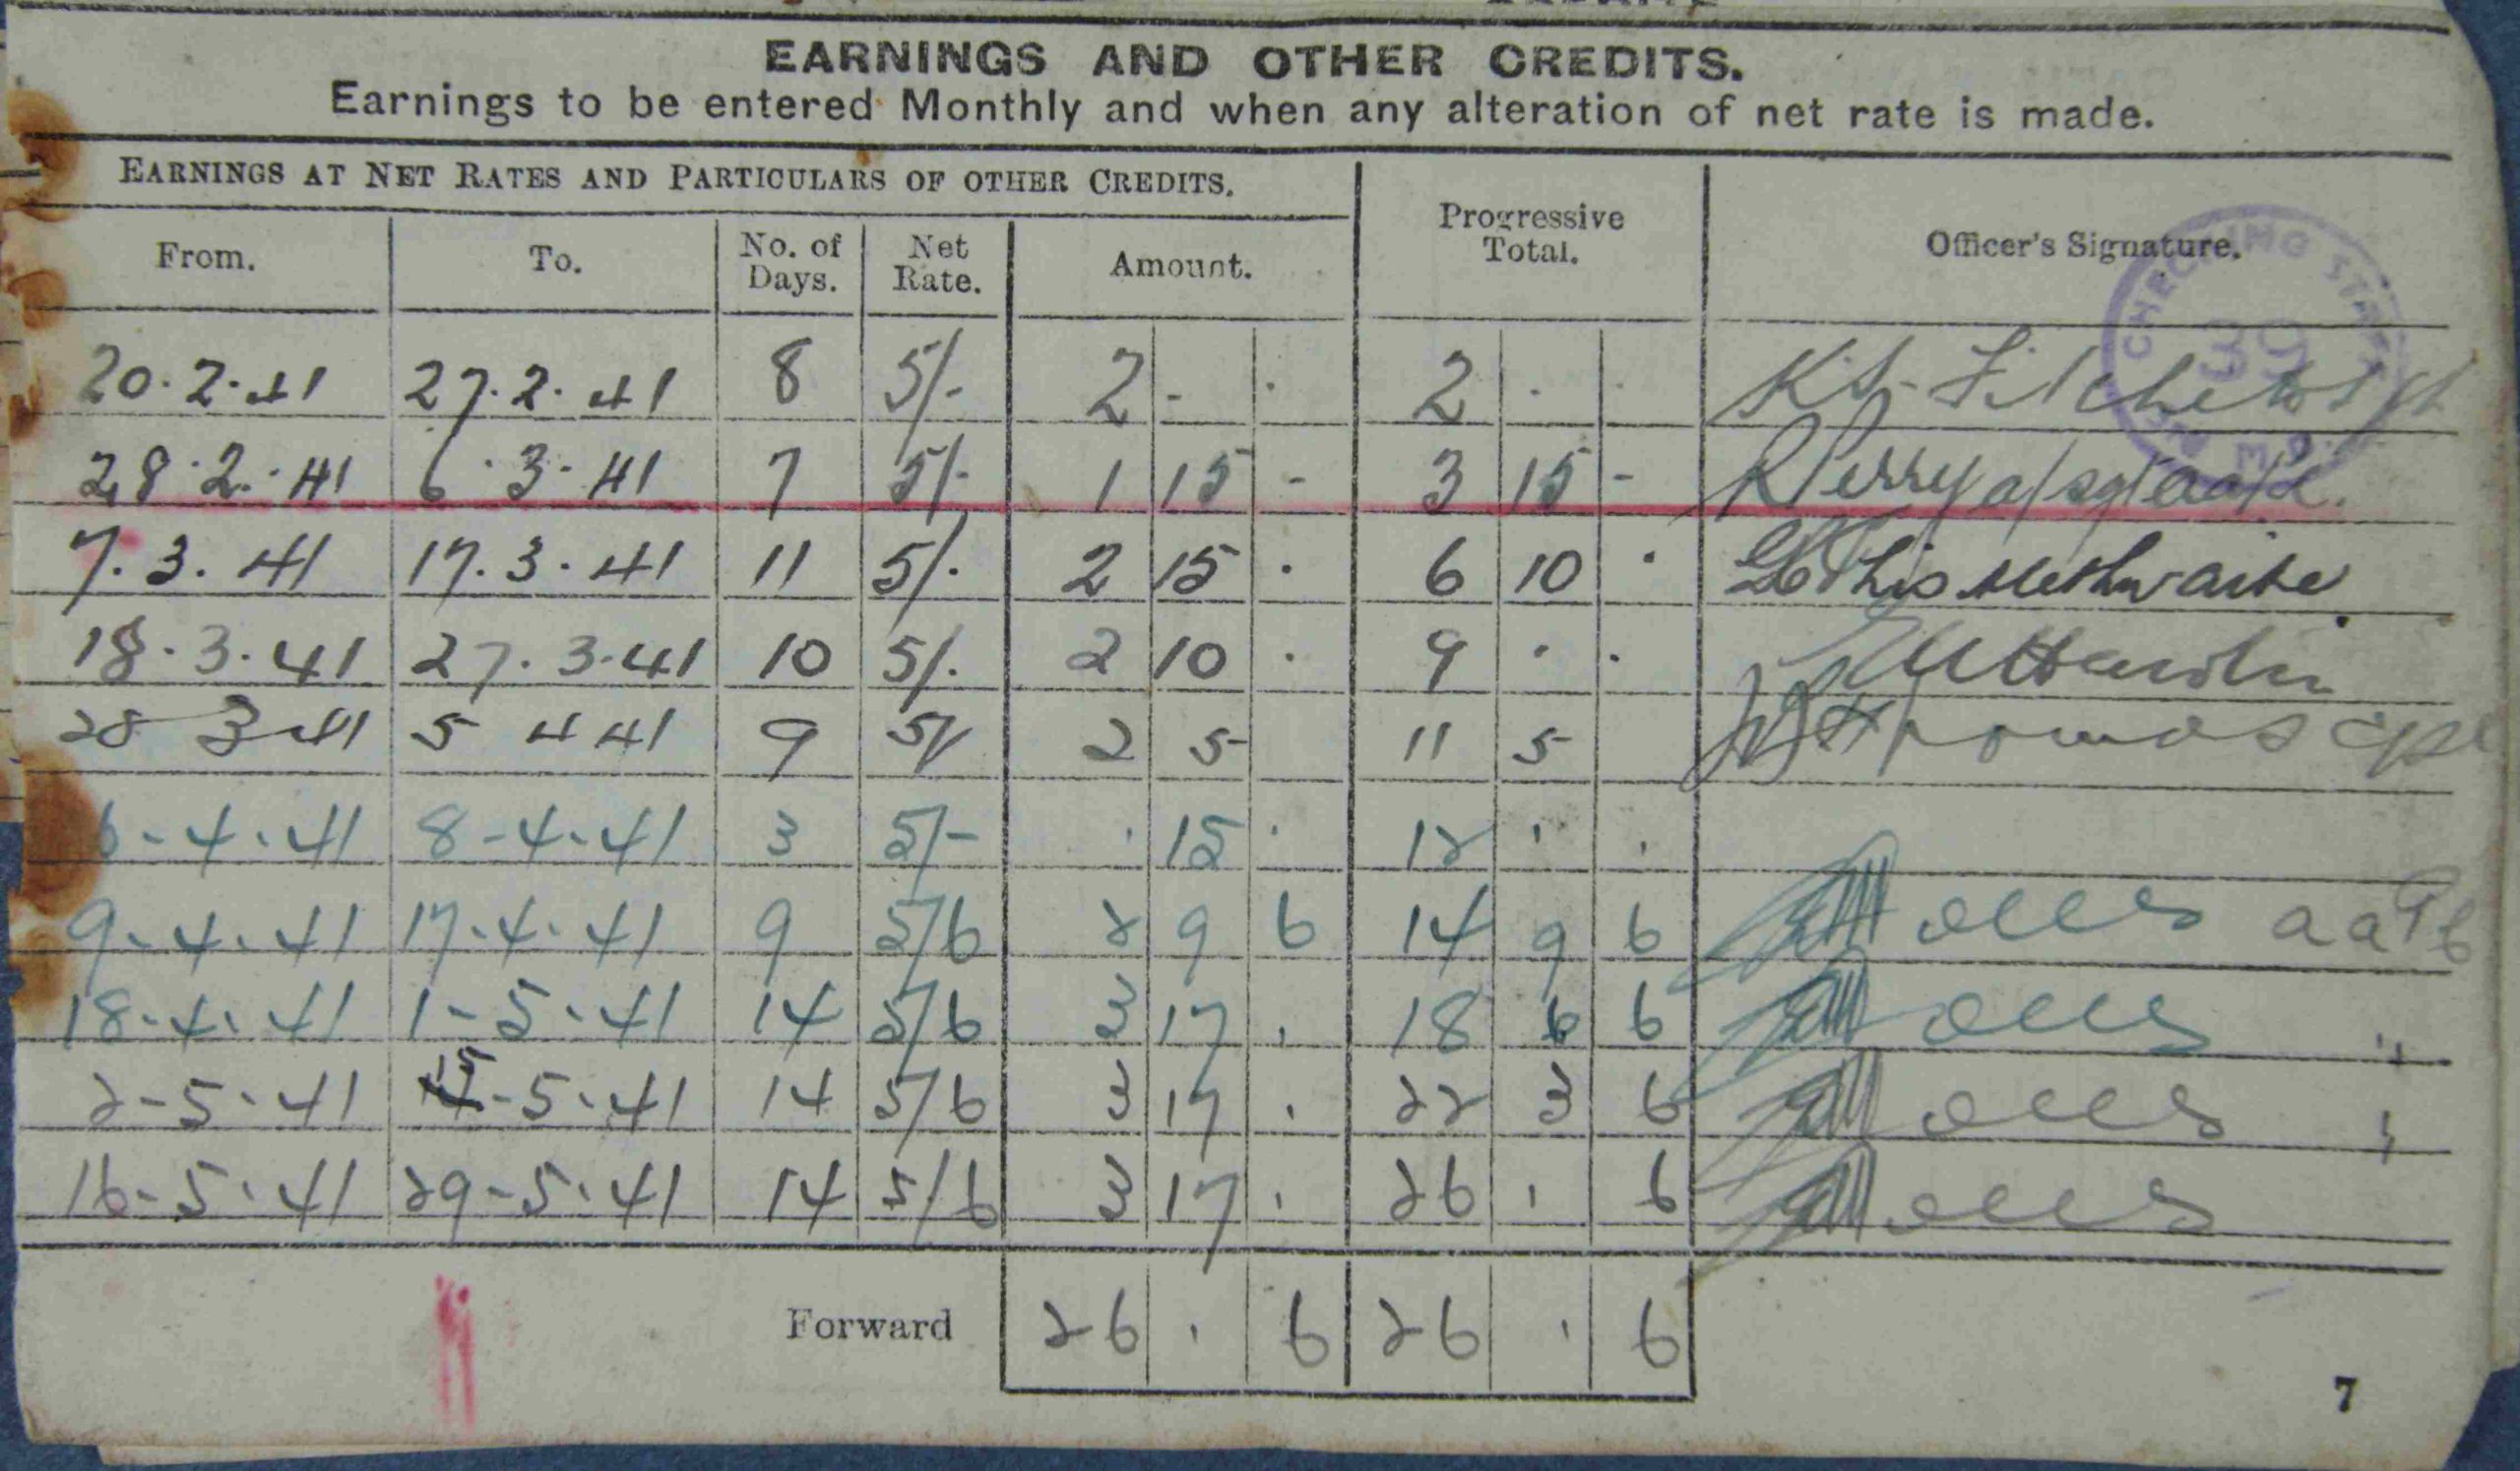 EARNINGS AND OTHER CREDITS.
Earnings to be entered Monthly and when any alteration of net rate is made.
EARNINGS AT NET RATES AND PARTICULARS OF OTHER CREDITS.
From. To. No. of Days. Net Rate. Amount. Progressive Total. Officer's Signature.
CHECKING STAFF 39 3RD M.D.
20.2.41 27.2.41 8 5/- 2 - . 2 . .
28.2.41 6.3.41 7 5/- 1 15 - 3 15 - Perry a/sgt
7.3.41 17.3.41 11 5/. 2 15 . 6 10 . Thistlethwaite
18.3.41 27.3.41 10 5/. 2 10 . 9 . .
28 3 41 5 4 41 9 5/ 2 5 11 5 Thomas cpl
6-4.41 8-4.41 3 5/- . 15 . 12 . .
9.4.41 17.4.41 9 5/6 2 9 6 14 9 6
18-4.41 1-5.41 14 5/6 3 17 . 18 6 6 "
2-5.41 15-5.41 14 5/6 3 17 . 22 3 6 "
16-5.41 29-5.41 14 5/6 3 17 . 26 . 6
Forward 26 . 6 26 . 6
7